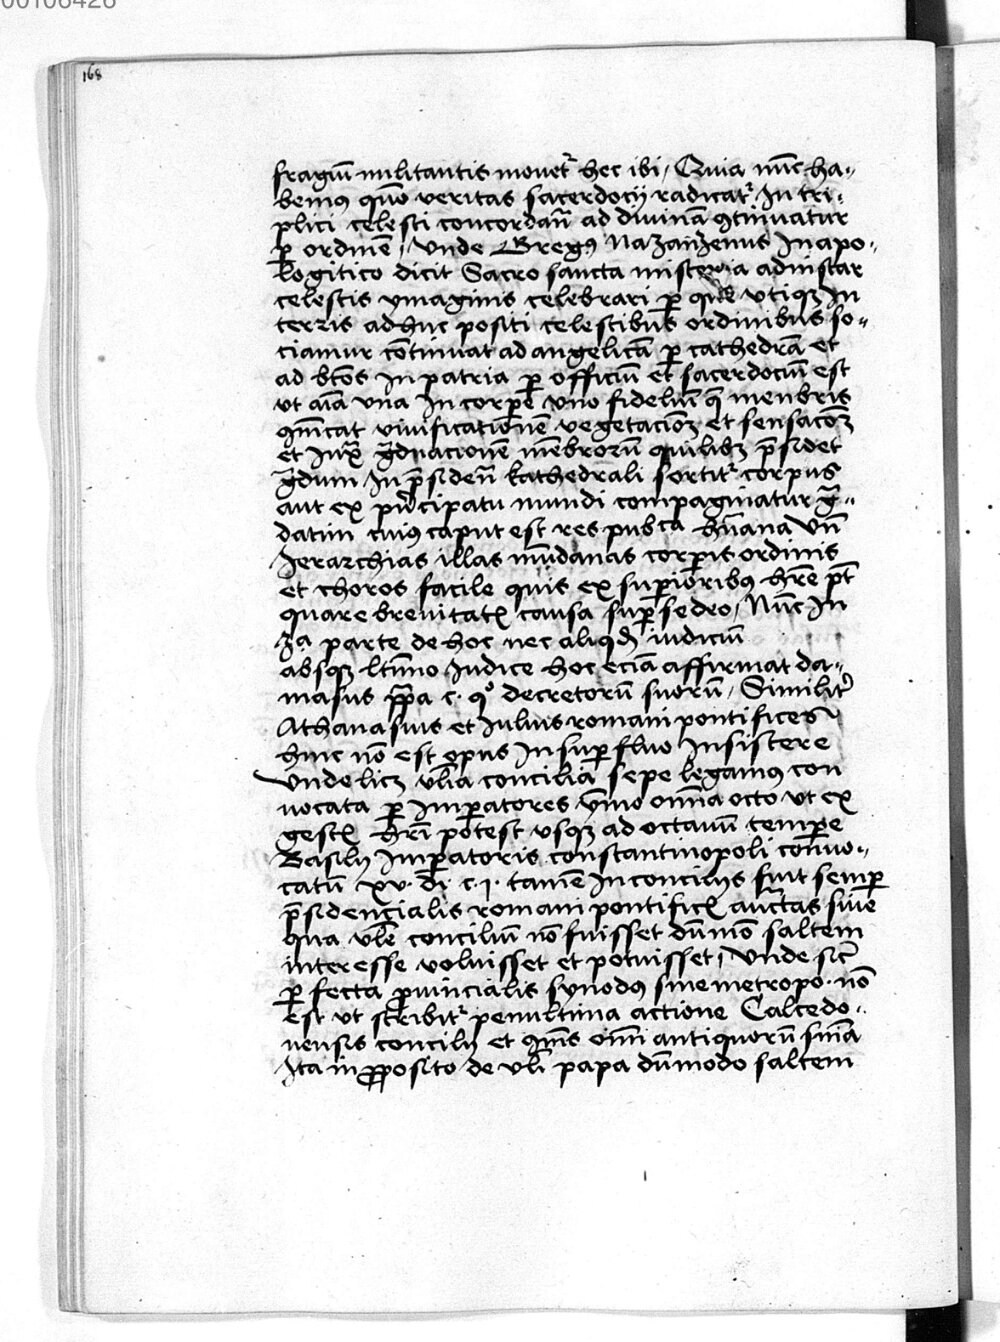 00106426
168
fragiu᷃ militantis mouet᷑ hec ibi / Quia nu᷃c ha-
bemus quo᷃ veritas sacerdocij radicat᷑ In tri-
plici celesti concordan᷃ ad diuina᷃ 9tinuatur
ꝑ ordine᷃ / Vnde Greg9 Nazanzenus In apo-
logitico dicit Sacro sancta misteria ad instar
celestis ymaginis celebrari ꝑ que vtiqꝫ In
terris adhuc positi celestibus ordinibus so-
ciamur co᷃tinuat ad angelica᷃ ꝑ cathedra᷃ et
ad bt᷃os In patria ꝑ officiu᷃ et sacerdociu᷃ est
vt ai᷃a vna In corpe᷃ vno fideliu᷃ q᷃ menbris
9mu᷃icat viuificatione᷃ vegetacio᷃ꝫ et sensaco᷃ꝫ
et Iux᷃ g᷃duacionem me᷃broru᷃ quilibꝫ p᷃sidet
g᷃dum In p᷃siden᷃ kathedrali sortit᷑ corpus
aut ex pi᷃ncipatu mundi compaginatur g᷃-
datim cuius caput est res pub᷃ca hu᷃ana Vn᷃
Ierarchias illas mu᷃danas corꝑis ordinis
et choros facile quis ex suꝑioribus h᷃re pt᷃
quare breuitat᷃ causa suꝑ sedeo / Nu᷃c In
3a parte de hoc nec aliqd᷃ iudiciu᷃
absqꝫ lti᷃mo Iudice hoc ecia᷃ affirmat da-
masus pp᷃a c. qo decretoru᷃ suoru᷃ / Similit᷑
Athanasius et Iulius romani pontifices
huic no᷃ est opus In suꝑfluo Insistere
Vnde licꝫ vl᷃ia concilia sepe legamus con
uocata ꝑ Imꝑatores ymo om᷃ia octo vt ex
gest᷃ h᷃ri potest vsqꝫ ad octauu᷃ tempe᷃
Basilij Imꝑatoris constantinopoli conuo-
catu᷃ xv. di᷃ c. j. tame᷃ In concilijs fuit semꝑ
p᷃sidencialis romani pontific᷃ auct᷃tas siue᷃
qua vl᷃e conciliu᷃ no᷃ fuisset du᷃mo᷃ saltem
interesse voluisset et potuisset / Vnde sic᷃
ꝑfecta ꝓuincialis synodus sine metropo. no᷃
est vt scribit᷑ penultima actione Calcedo-
nensis concilij et 9mu᷃is om᷃i antiquoru᷃ sn᷃ia
Ita in ꝓposito de vl᷃i papa du᷃modo saltem